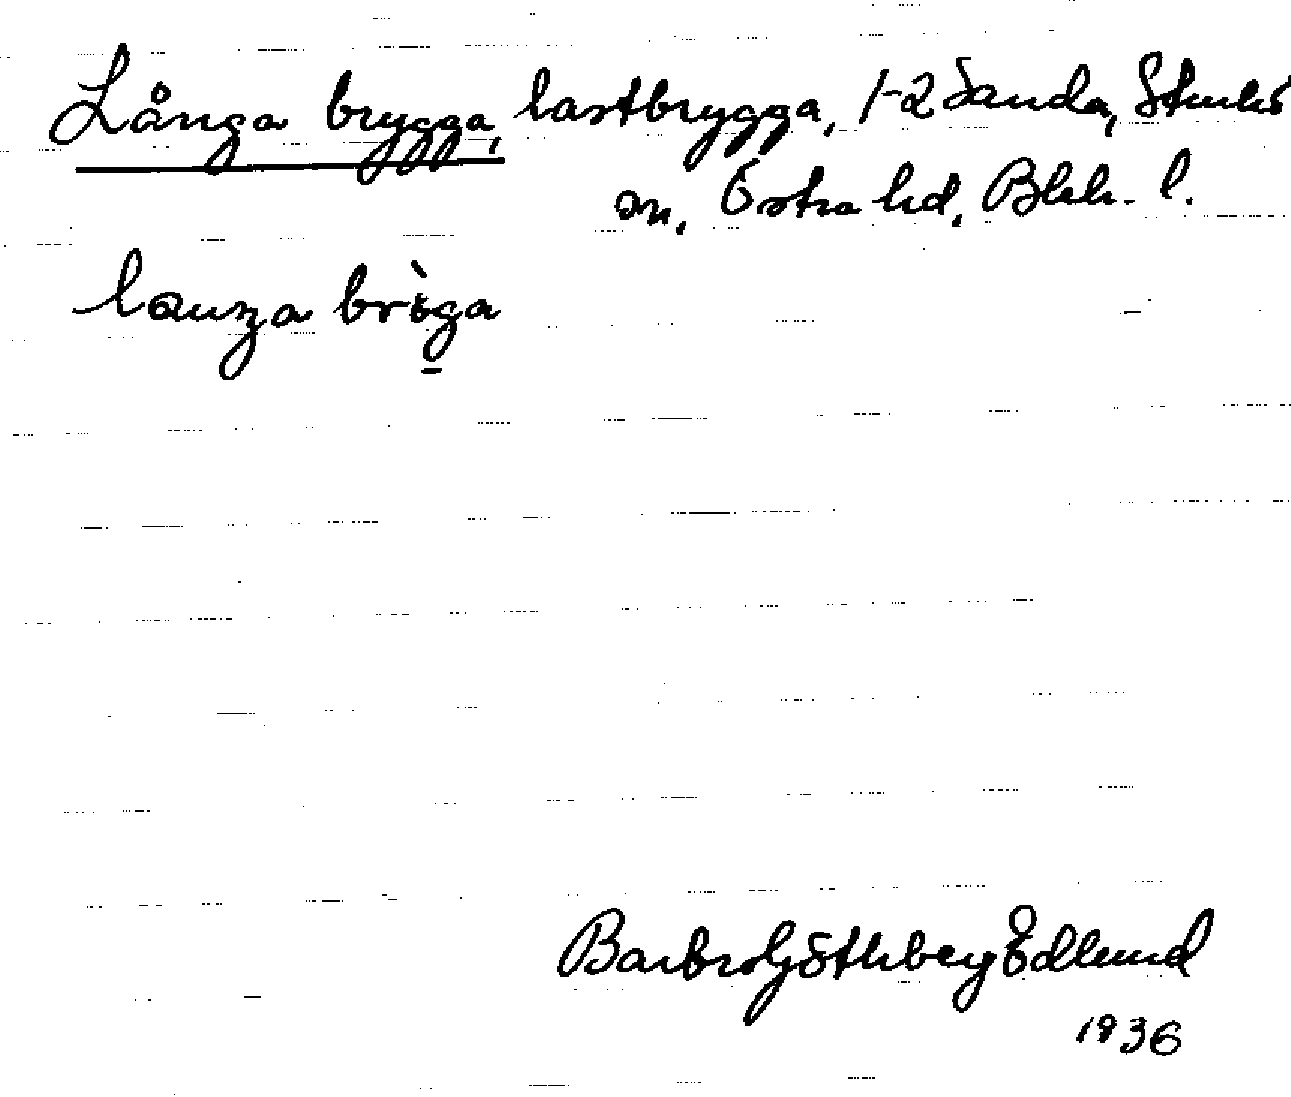 Långa brygga, lastbrygga, 1-2 Sanda, Sturkö
sn, Östra hd, Blek. l.
lauŋa brỳga
Barbro Göthberg Edlund
1936